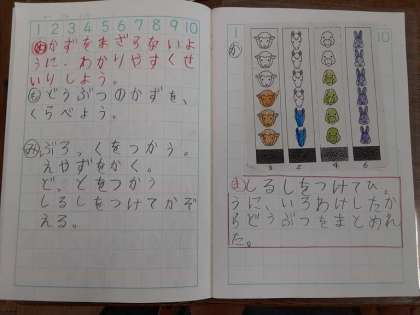 1 2 3 4 5 6 7 8 9 10
めかずをまざらないよ
うに、わかりやすくせ
いりしよう。
もどうぶつのかずを、
くらべよう。
みぶろっくをつかう。
えやずをかく。
ど、とをつかう
しるしをつけてかぞ
える。
1
10
3 2 4 6
ましるしをつけてひょ
うに、いろわけしたか
らどうぶつをまとめれ
た。